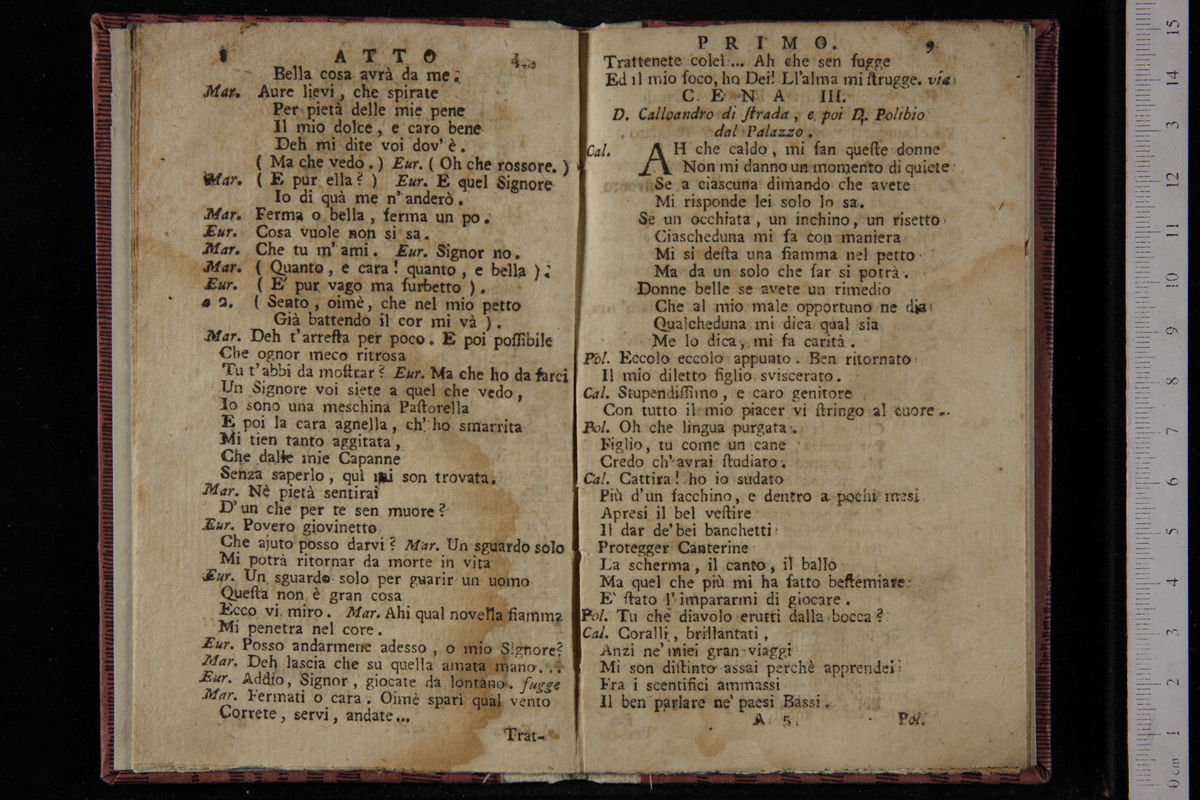 8 ATTO
Bella cosa avrà da me.
Mar. Aure lievi, che spirate
Per pietà delle mie pene
Il mio dolce, e caro bene
Deh mi dite voi dov' è.
( Ma che vedo. ) Eur. ( Oh che rossore. )
Mar. ( E pur ella? ) Eur. E quel Signore
Io di quà me n' anderò.
Mar. Ferma o bella, ferma un po.
Eur. Cosa vuole non si sa.
Mar. Che tu m' ami. Eur. Signor no.
Mar. ( Quanto, e cara! quanto, e bella ).
Eur. ( E' pur vago ma furbetto ).
a 2. ( Sento, oimè, che nel mio petto
Già battendo il cor mi và ).
Mar. Deh t'arresta per poco. E poi possibile
Che ognor meco ritrosa
Tu t'abbi da mostrar? Eur. Ma che ho da farci
Un Signore voi siete a quel che vedo,
Io sono una meschina Pastorella
E poi la cara agnella, ch' ho smarrita
Mi tien tanto aggitata,
Che dalle mie Capanne
Senza saperlo, quì mi son trovata.
Mar. Nè pietà sentirai
D' un che per te sen muore?
Eur. Povero giovinetto
Che ajuto posso darvi? Mar. Un sguardo solo
Mi potrà ritornar da morte in vita
Eur. Un sguardo solo per guarir un uomo
Questa non è gran cosa
Ecco vi miro. Mar. Ahi qual novella fiamma
Mi penetra nel core.
Eur. Posso andarmene adesso, o mio Signore?
Mar. Deh lascia che su quella amata mano...
Eur. Addio, Signor, giocate da lontano. fugge
Mar. Fermati o cara. Oimè sparì qual vento
Correte, servi, andate...
Trat-
PRIMO. 9
Trattenete colei... Ah che sen fugge
Ed il mio foco, ho Dei! Ll'alma mi strugge. via
CENA III.
D. Calloandro di strada, e poi D. Polibio
dal Palazzo.
Cal. AH che caldo, mi fan queste donne
Non mi danno un momento di quiete
Se a ciascuna dimando che avete
Mi risponde lei solo lo sa.
Se un occhiata, un inchino, un risetto
Ciascheduna mi fa con maniera
Mi si desta una fiamma nel petto
Ma da un solo che far si potrà.
Donne belle se avete un rimedio
Che al mio male opportuno ne dia
Qualcheduna mi dica qual sia
Me lo dica, mi fa carità.
Pol. Eccolo eccolo appunto. Ben ritornato
Il mio diletto figlio sviscerato.
Cal. Stupendissimo, e caro genitore
Con tutto il mio piacer vi stringo al cuore..
Pol. Oh che lingua purgata.
Figlio, tu come un cane
Credo ch' avrai studiato.
Cal. Cattira! ho io sudato
Più d'un facchino, e dentro a pochi mesi
Apresi il bel vestire
Il dar de' bei banchetti
Protegger Canterine
La scherma, il canto, il ballo
Ma quel che più mi ha fatto bestemiare
E' stato l' impararmi di giocare.
Pol. Tu che diavolo erutti dalla bocca?
Cal. Coralli, brillantati,
Anzi ne' miei gran viaggi
Mi son distinto assai perchè apprendei
Fra i scentifici ammassi
Il ben parlare ne' paesi Bassi.
A 5. Pol.
0 cm 1 2 3 4 5 6 7 8 9 10 11 12 3 14 15